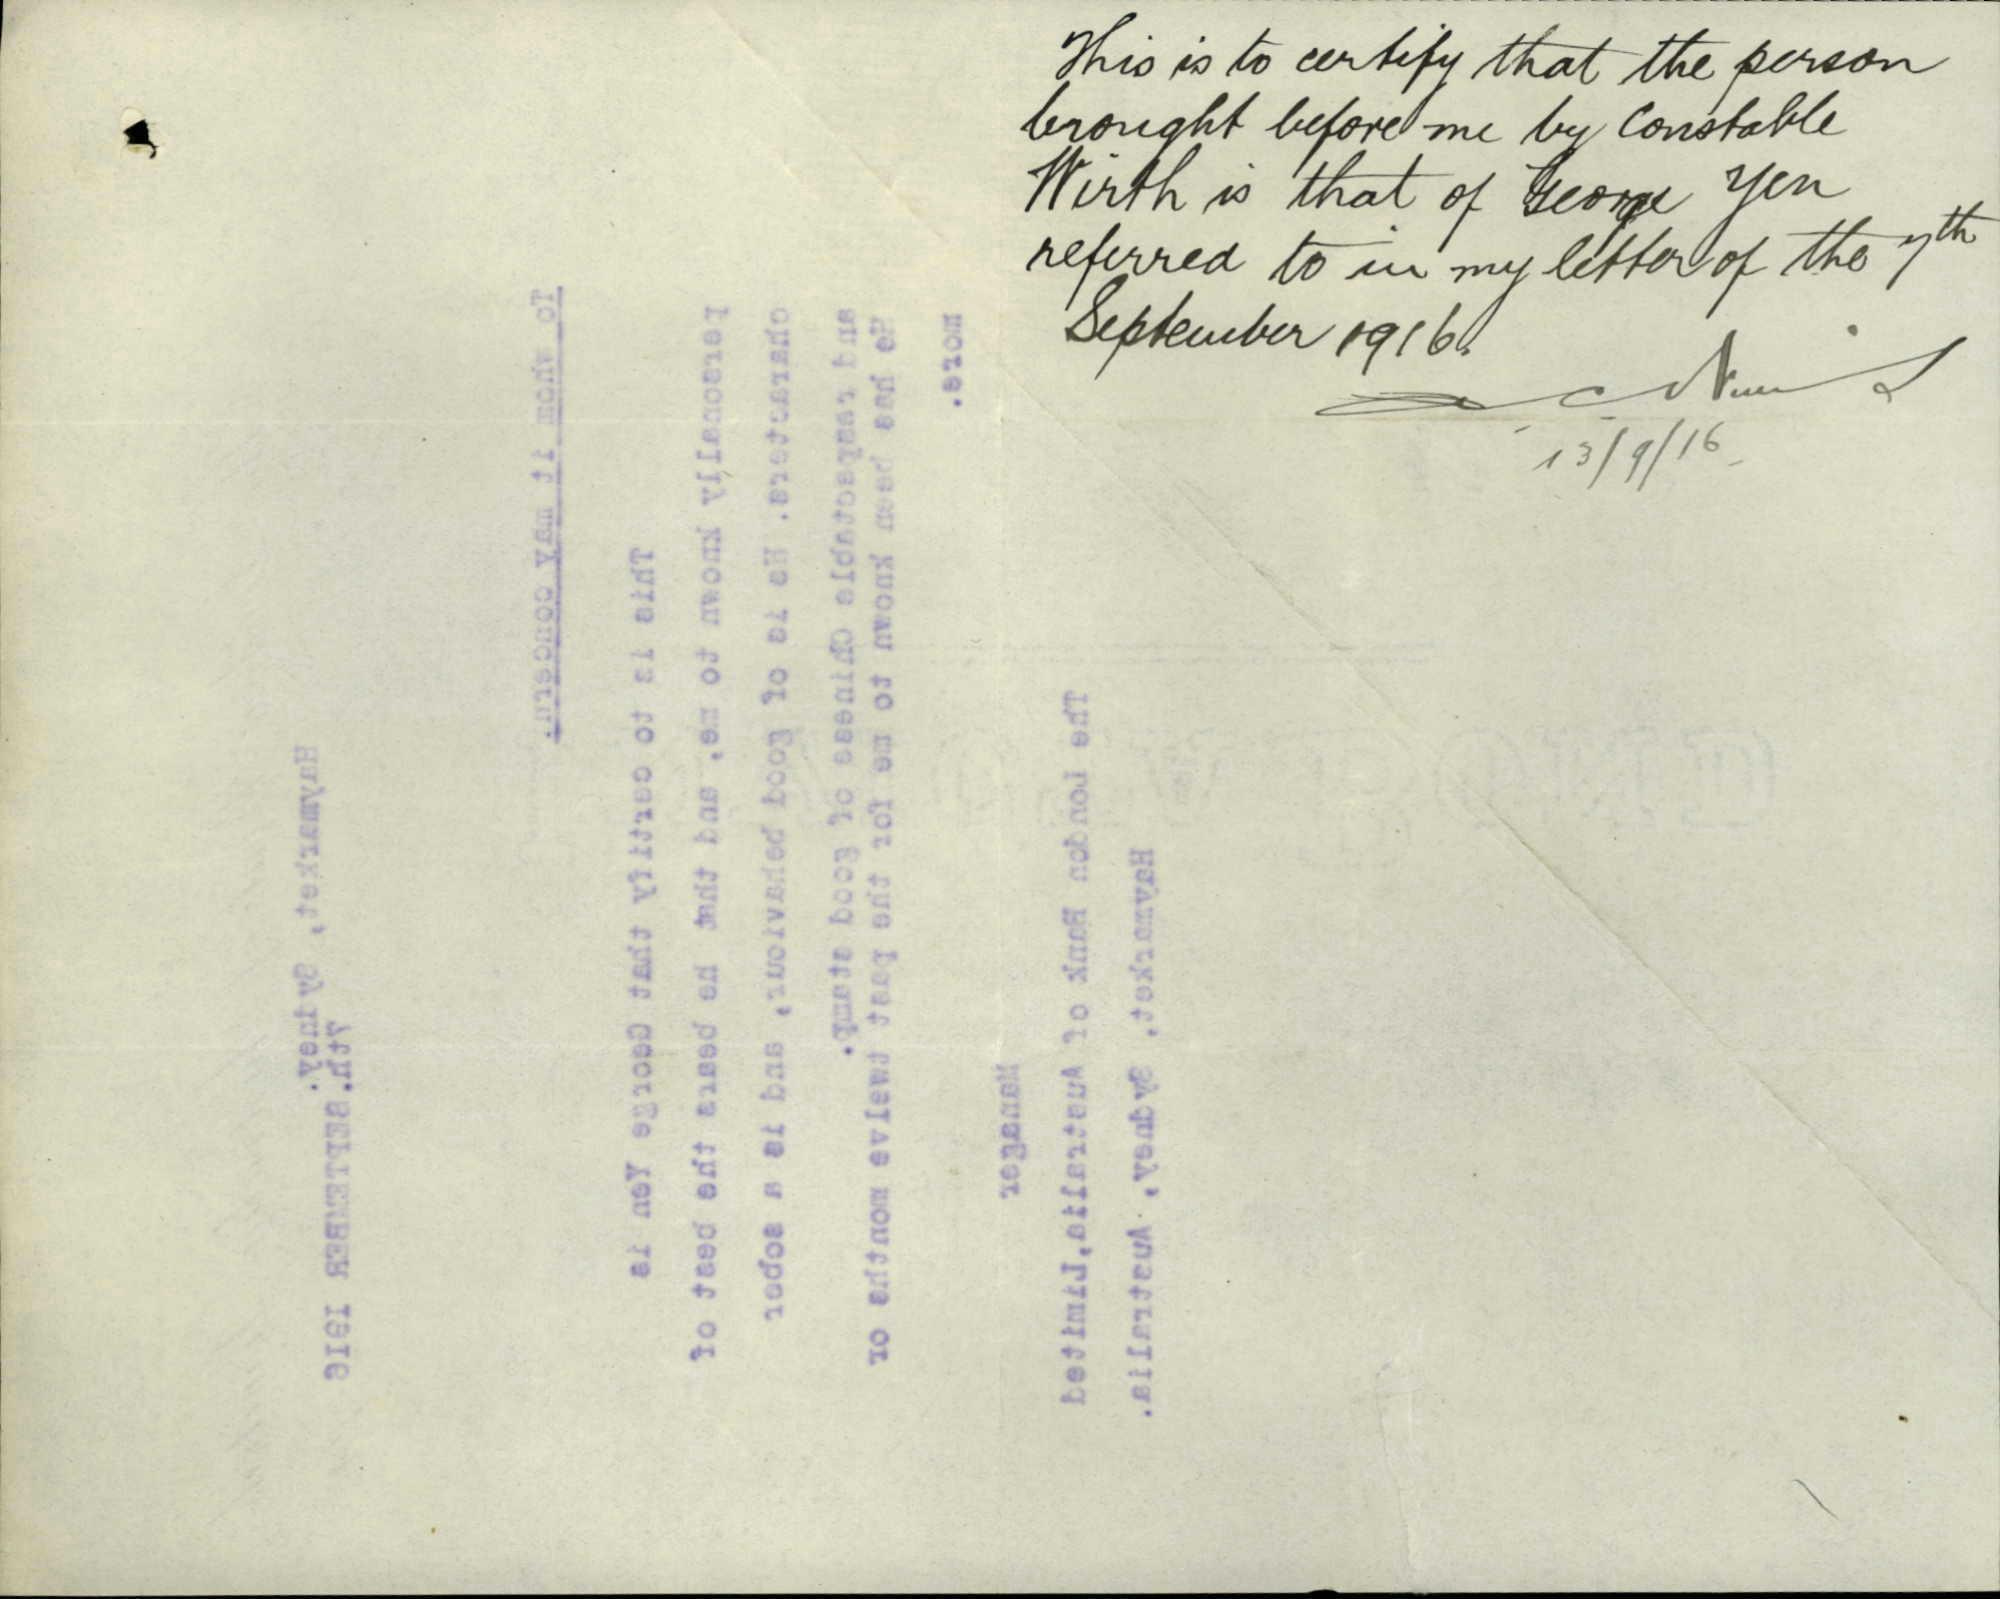 This is to certify that the person
brought before me by Constable
Wirth is that of George Yen
referred to in my letter of the 7th
September 1916.
13/9/16
Haymarket, Sydney.
7th. SEPTEMBER 1916
To whom it may concern.
This is to certify that George Yen is
personally known to me, and that he bears the best of
characters. He is of good behaviour, and is a sober
and respectable Chinese of good stamp.
He has been known to me for the past twelve months or
more.
Manager
The London Bank of Australia, Limited
Haymarket, Sydney, Australia.